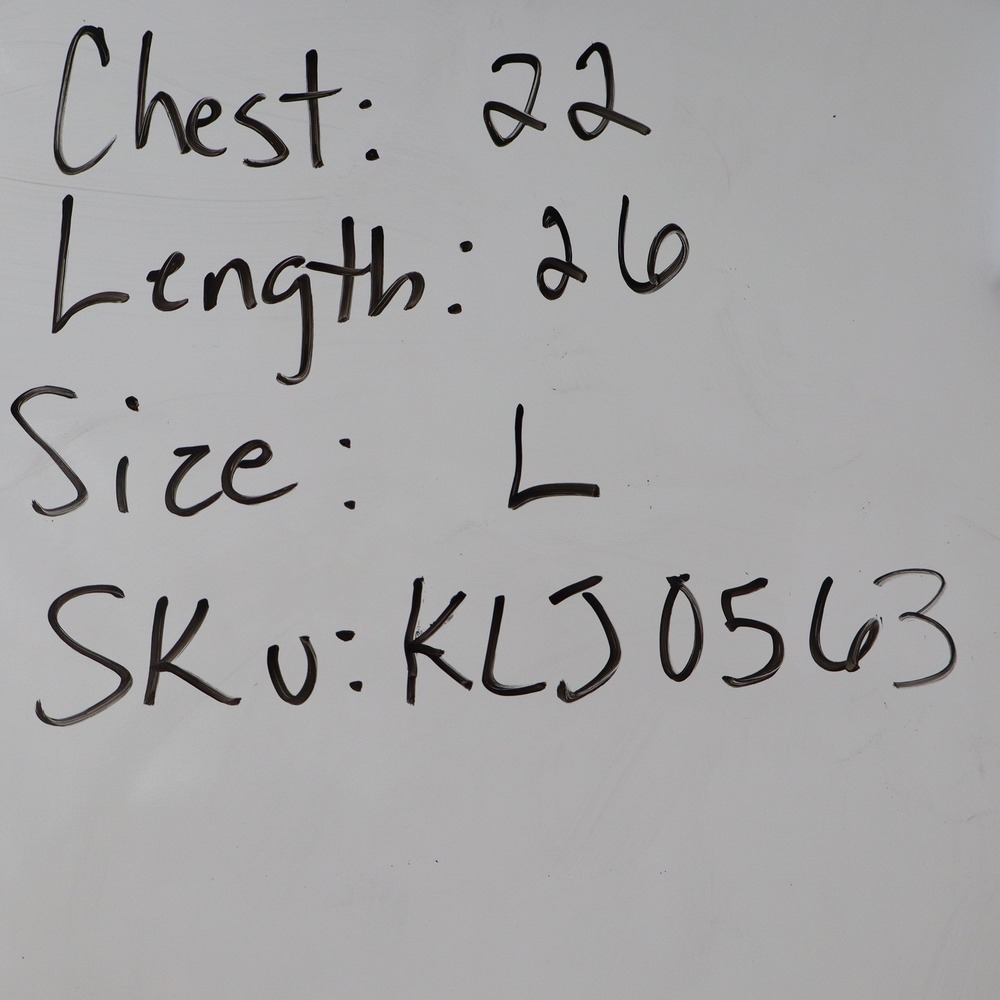 Chest: 22
Length: 26
Size: L
SKU: KLJ0563